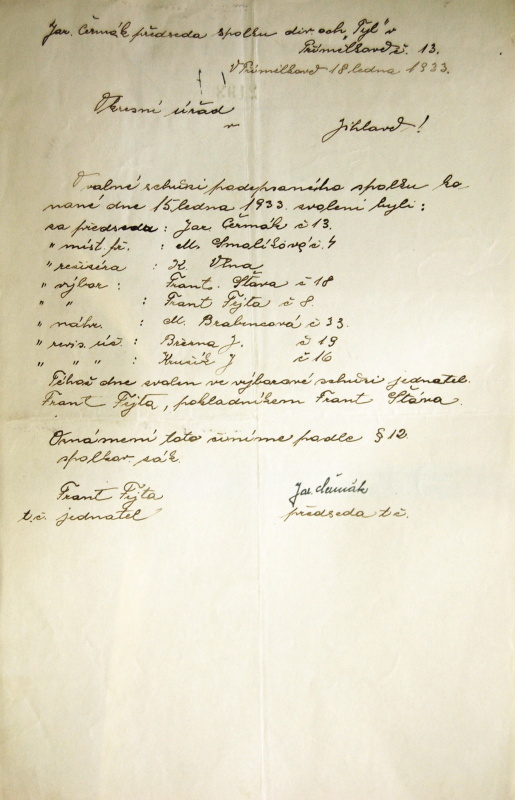 Jar. Čermák předseda spolku div. och. "Tyl" v
Příměllkově č. 13.
V Příměllkově 18 ledna 1933.
Okresní úřad
v
Jihlavě!
V valné schůzi podepsaného spolku ko
nané dne 15 ledna 1933. zvoleni byli:
za předsedu: Jar. Čermák č 13.
" míst. př. : M. Smalíková č. 4
" režiséra : K. Vlna
" výbor : Frant. Šťáva č 18
" " : Frant Fejta č 8.
" náhr. : M. Brabencová č 33.
" revis. úč. : Března J. č 19
" " " : J č 16
Téhož dne zvolen ve výborové schůzi jednatel.
Frant Fejta, pokladníkem Frant Šťáva.
Oznámení toto činíme podle § 12
spolkov. zák.
Frant Fejta
t. č. jednatel
Jar. Čermák
předseda t. č.